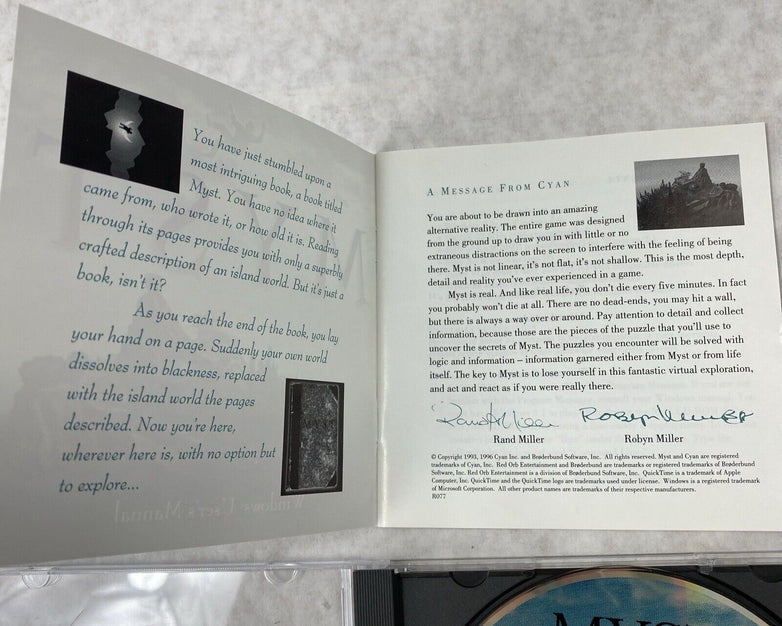 You have just stumbled upon a
most intriguing book, a book titled
Myst. You have no idea where it
came from, who wrote it, or how old it is. Reading
through its pages provides you with only a superbly
crafted description of an island world. But it's just a
book, isn't it?
As you reach the end of the book, you lay
your hand on a page. Suddenly your own world
dissolves into blackness, replaced
with the island world the pages
described. Now you're here,
wherever here is, with no option but
to explore...
Windows User's Manual
A Message From Cyan
You are about to be drawn into an amazing
alternative reality. The entire game was designed
from the ground up to draw you in with little or no
extraneous distractions on the screen to interfere with the feeling of being
there. Myst is not linear, it's not flat, it's not shallow. This is the most depth,
detail and reality you've ever experienced in a game.
Myst is real. And like real life, you don't die every five minutes. In fact
you probably won't die at all. There are no dead-ends, you may hit a wall,
but there is always a way over or around. Pay attention to detail and collect
information, because those are the pieces of the puzzle that you'll use to
uncover the secrets of Myst. The puzzles you encounter will be solved with
logic and information – information garnered either from Myst or from life
itself. The key to Myst is to lose yourself in this fantastic virtual exploration,
and act and react as if you were really there.
Rand Miller Robyn Miller
Rand Miller Robyn Miller
© Copyright 1993, 1996 Cyan Inc. and Brøderbund Software, Inc. All rights reserved. Myst and Cyan are registered
trademarks of Cyan, Inc. Red Orb Entertainment and Brøderbund are trademarks or registered trademarks of Brøderbund
Software, Inc. Red Orb Entertainment is a division of Brøderbund Software, Inc. QuickTime is a trademark of Apple
Computer, Inc. QuickTime and the QuickTime logo are trademarks used under license. Windows is a registered trademark
of Microsoft Corporation. All other product names are trademarks of their respective manufacturers.
R077
MYST